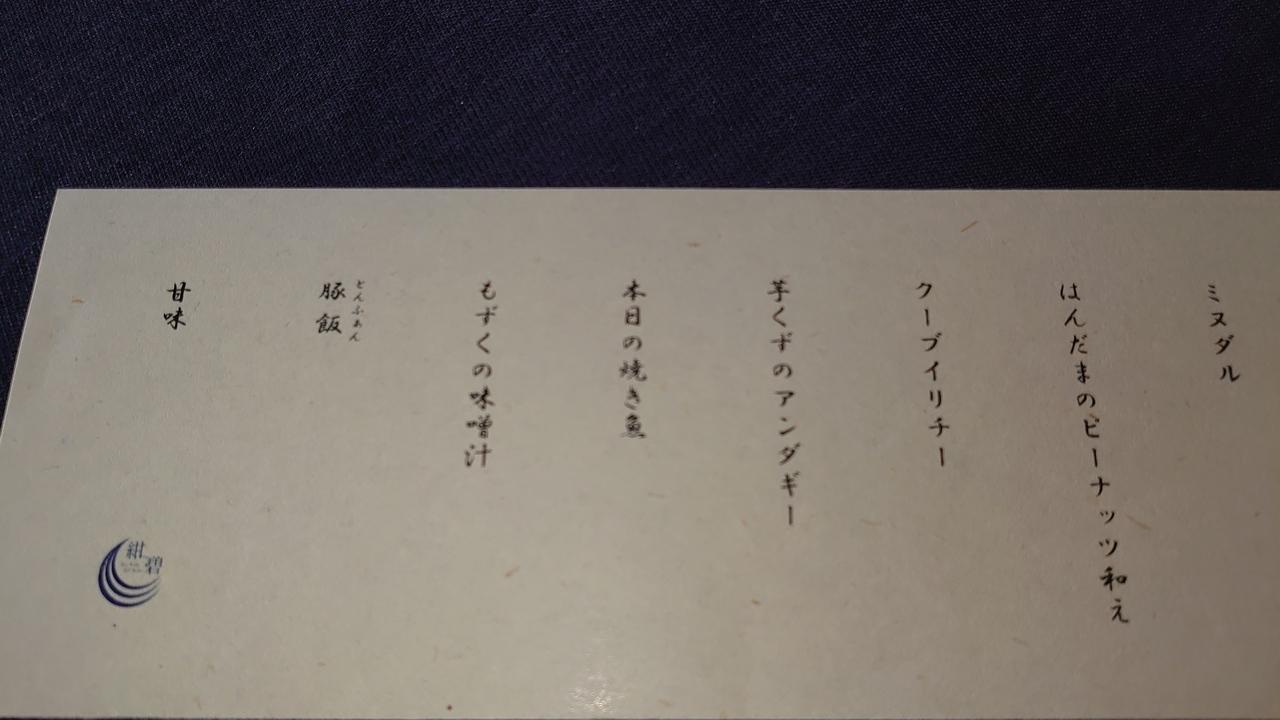 ミヌダル
はんだまのピーナッツ和え
クーブイリチー
芋くずのアンダギー
本日の焼き魚
もずくの味噌汁
とんふぁん
豚飯
甘味
紺碧